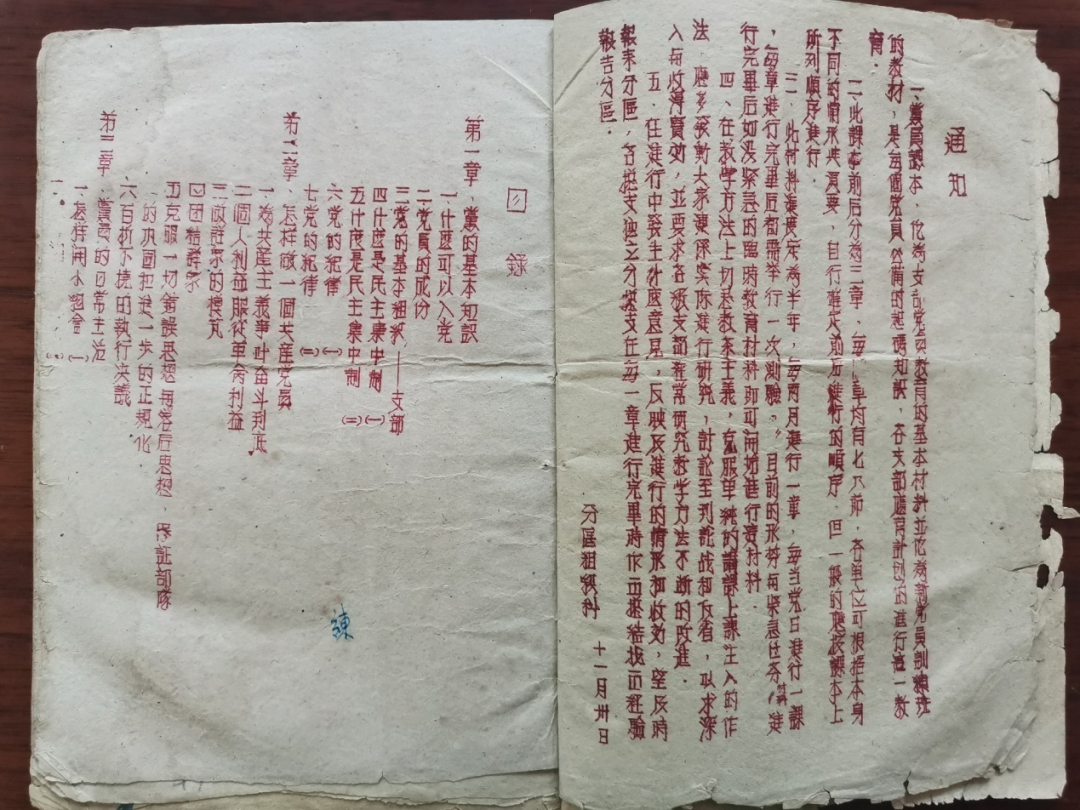 通知
一、黨員課本，化為支部党員教育的基本材料並作為新党員訓練班
的教材，是每個党員必備的起碼知识，各支部應有計划的進行這一教
育．
二、此課本前后分為三章，每章均有七八節，各單位可根据本身
不同的情形與需要，自行確定前后進行的順序，但一般的應按課本上
所列順序進行．
三．此材料進度定為半年，每兩月進行一章，每当党日進行一課
，每章進行完畢后都需举行一次測驗。目前的形势有緊急任务，進
行完畢后如没緊急的臨時教育材料即可開始進行這材料
四、在教学方法上切忌教条主義，克服单純的講課上課注入的作
法．應多發動大家連係实际進行研究，討論至判訟战和反省，以求深
入与收得實効，並要求各級支部經常研究教学方法不断的改進．
五．在進行中發生什麼意見，反映及進行的情形和收効，望及時
報告分區．
分區組織科 十一月卅日
目録
第一章、黨的基本知識
一什麼可以入党
二党員的成份
三党的基本組織——支部
四什麼是民主集中制（一）
五什麼是民主集中制（二）
六党的紀律（一）
七党的紀律（二）
第二章、怎样做一個共産党員
一、為共產主義事叶奋斗到底
二個人利益服從革命利益
三做群衆的模范
四团結群衆
五克服一切錯誤思想与落后思想、保証部隊
的巩固和進一步的正規化
六百折不撓的執行决議
第三章、黨員的日常生活
一怎样開小組會（一）
練